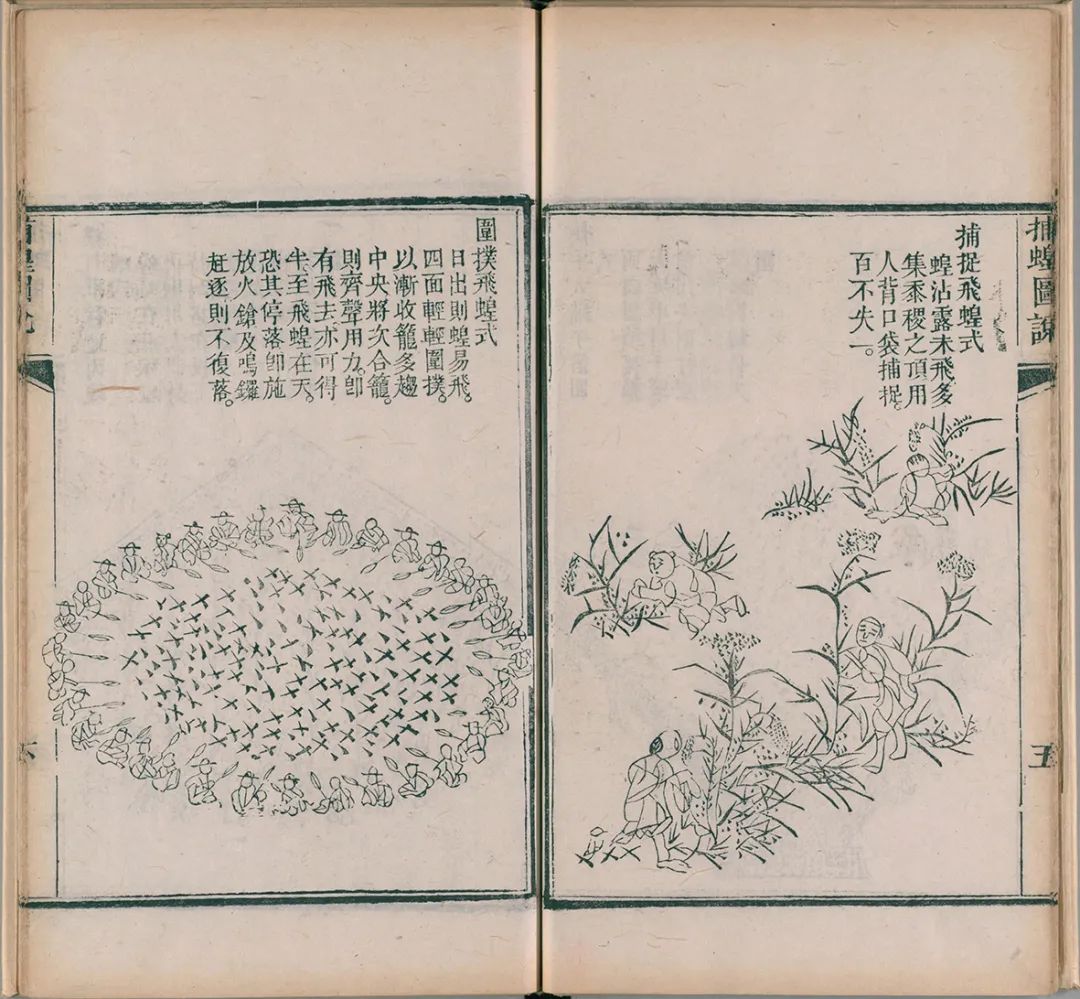 捕蝗圖說
捕捉飛蝗式
蝗沾露未飛多
集黍稷之頂用
人背口袋捕捉。
百不失一。
五
圍撲飛蝗式
日出則蝗易飛。
四面輕輕圍撲。
以漸收籠多趨
中央將次合籠。
則齊聲用力。卽
有飛去亦可得
半至飛蝗在天。
恐其停落卽施
放火鎗及鳴鑼
赶逐則不復落。
六